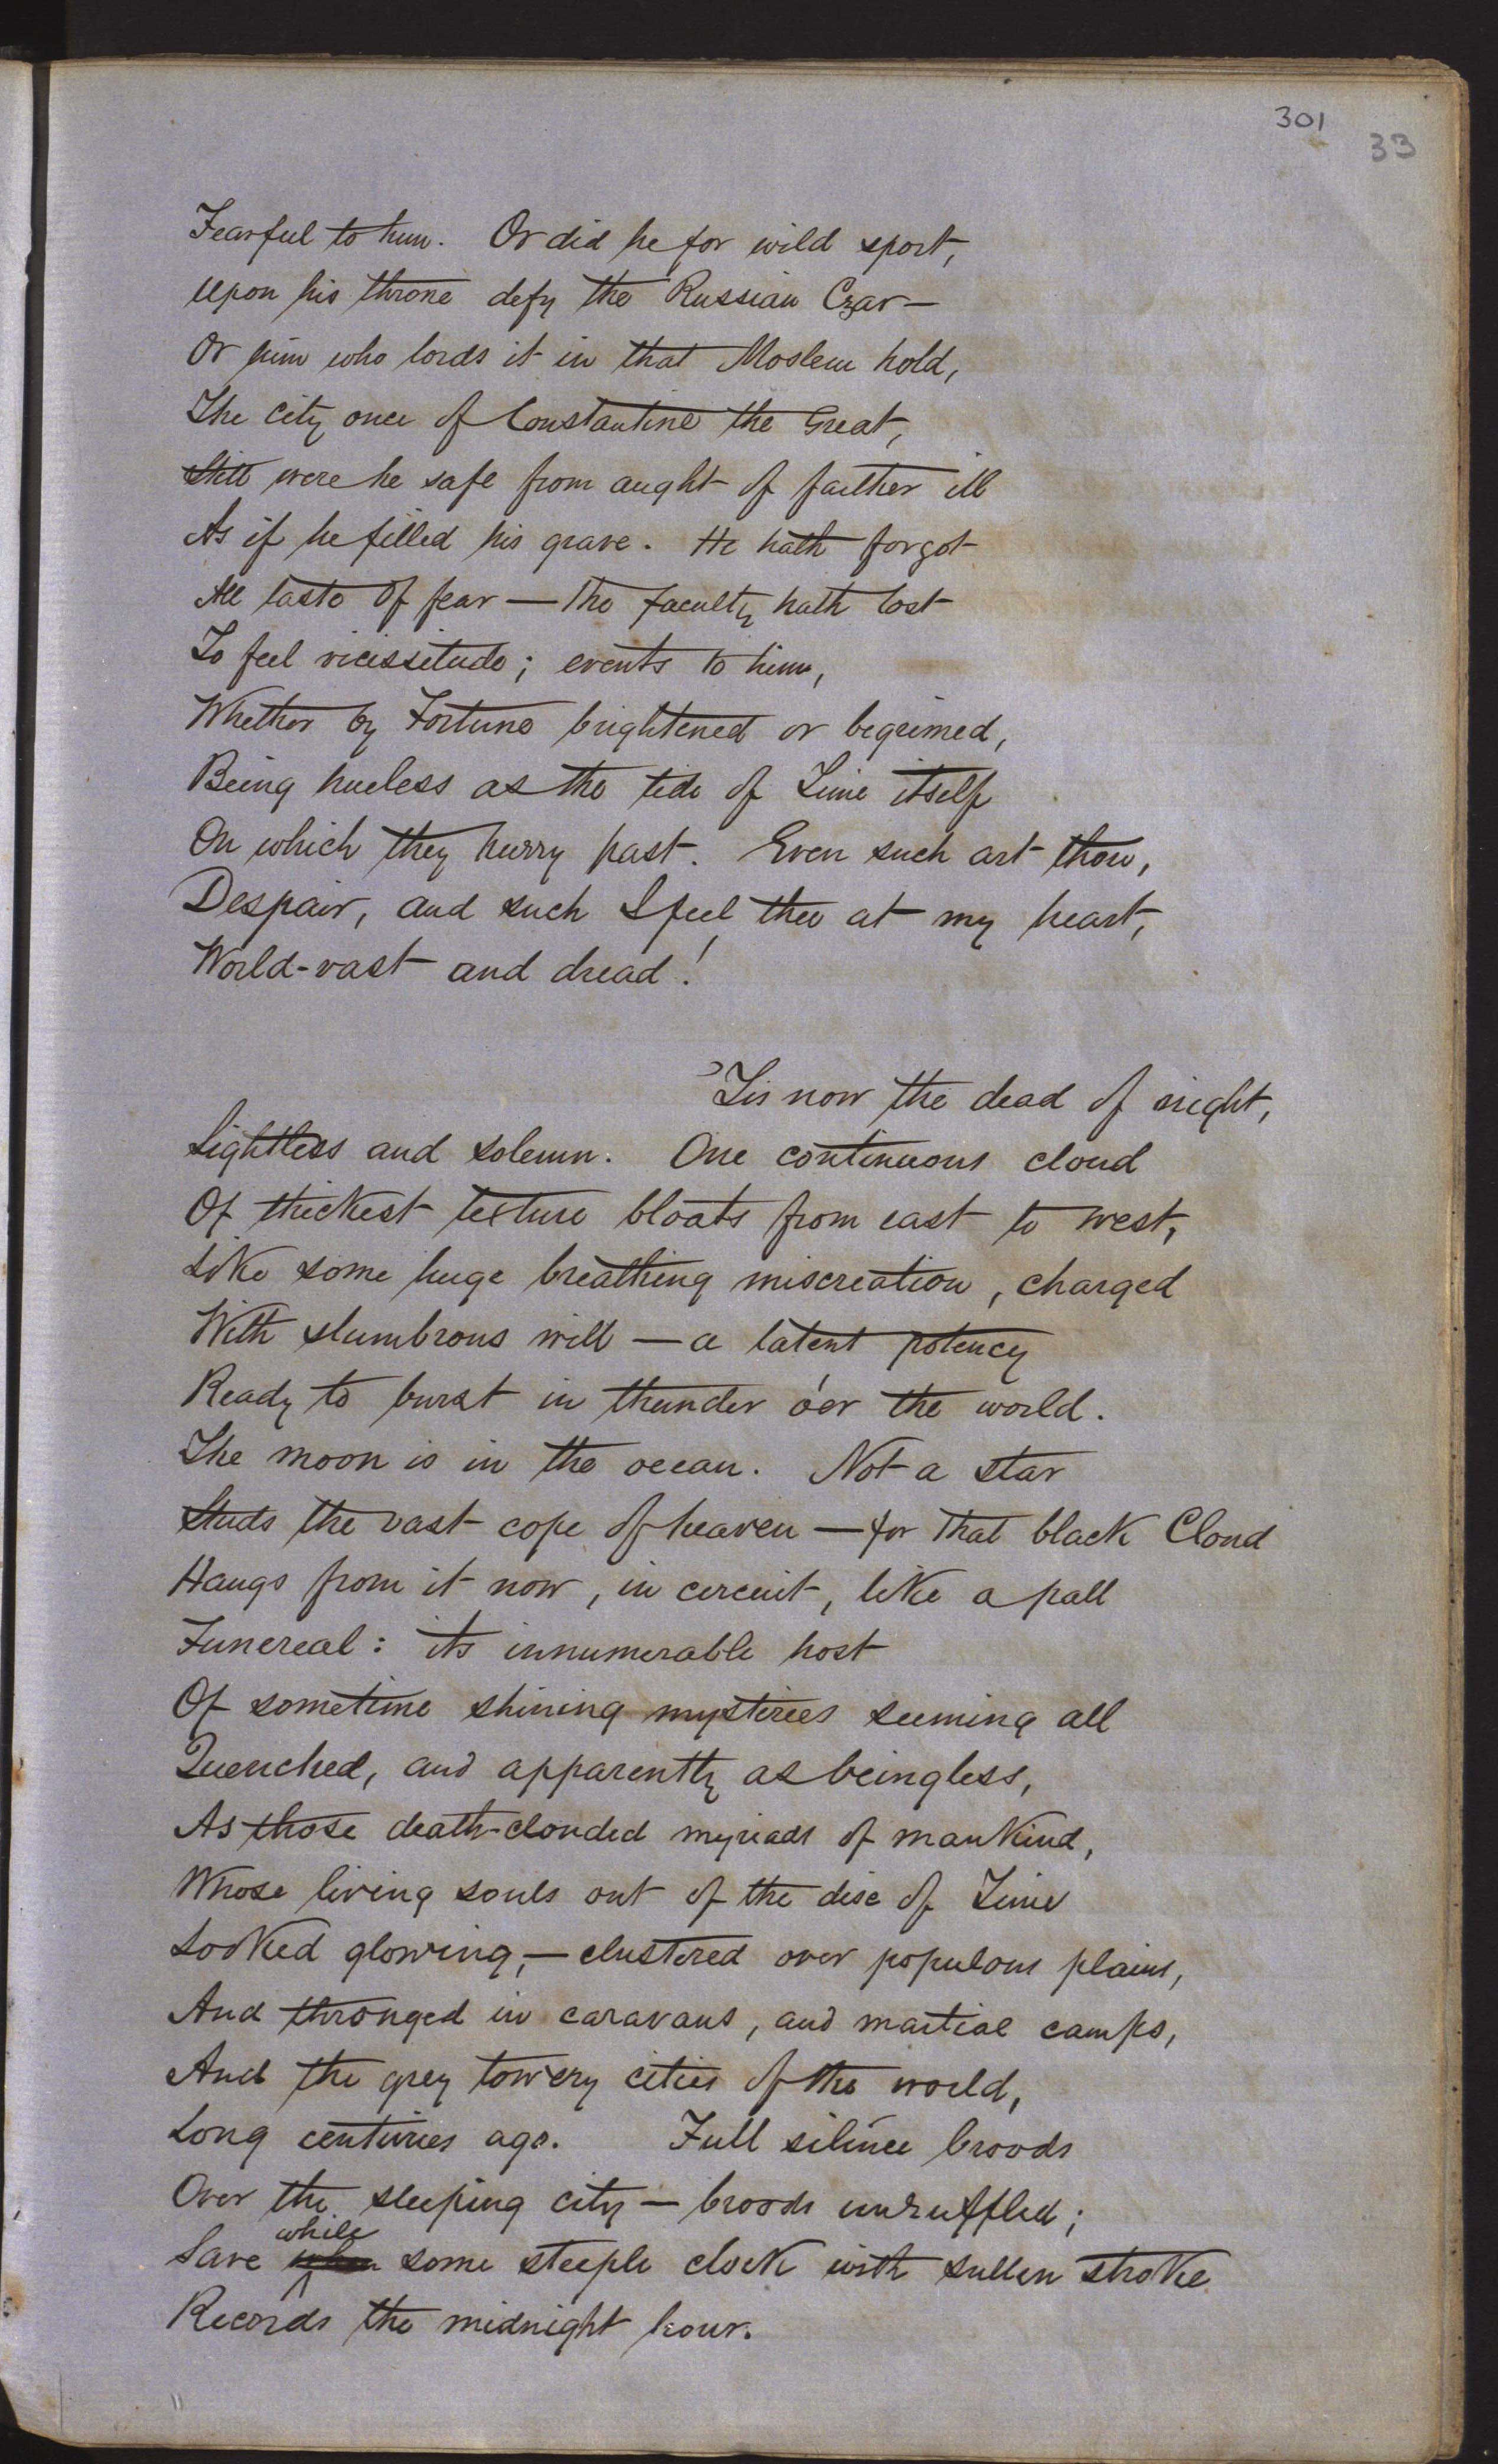 301
33
Fearful to him. Or did he for wild sport,
Upon his throne defy the Russian Czar—
Or him who lords it in that Moslem hold,
The City once of Constantine the Great,
Still were he safe from aught of farther ill
As if he filled his grave. He hath forgot
All taste of fear — the faculty hath lost
To feel vicissitude; events to him,
Whether by Fortune brightened or begrimed,
Being hueless as the tide of Time itself
On which they hurry past. Even such art thou,
Despair, and such I feel thee at my heart,
World-vast and dread!
'Tis now the dead of night,
Lightless and solemn. One continuous cloud
Of thickest texture bloats from east to west,
Like some huge breathing miscreation, charged
With slumbrous will — a latent potency
Ready to burst in thunder o'er the world.
The moon is in the ocean. Not a star
Studs the vast cope of heaven — for that black Cloud
Hangs from it now, in circuit, like a pall
Funereal: its innumerable host
Of sometime shining mysteries seeming all
Quenched, and apparently as beingless,
As those death-clouded myriads of mankind,
Whose living souls out of the disc of Time
Looked glowing,— clustered over populous plains,
And thronged in caravans, and martial camps,
And the grey towery cities of the world,
Long centuries ago. Full silence broods
Over the sleeping city — broods unruffled;
while
Save when some steeple clock with sullen stroke
Records the midnight hour.